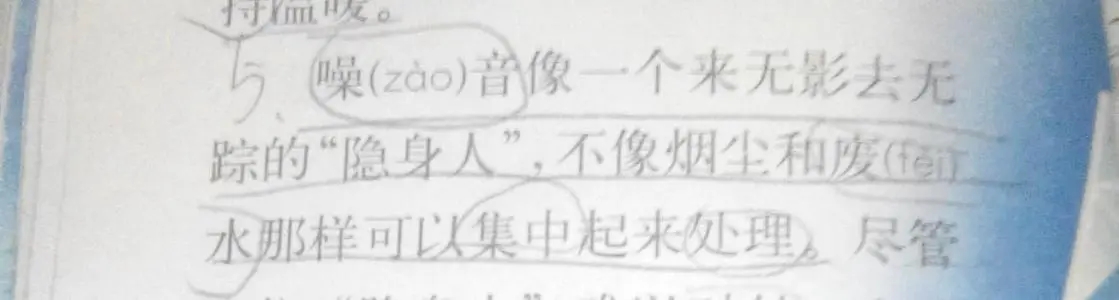 持温暖。
5、噪(zào)音像一个来无影去无
踪的“隐身人”,不像烟尘和废(fèi)
水那样可以集中起来处理。尽管